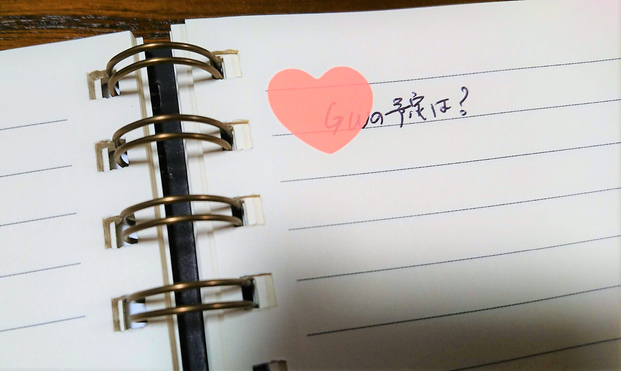 GWの予定は?